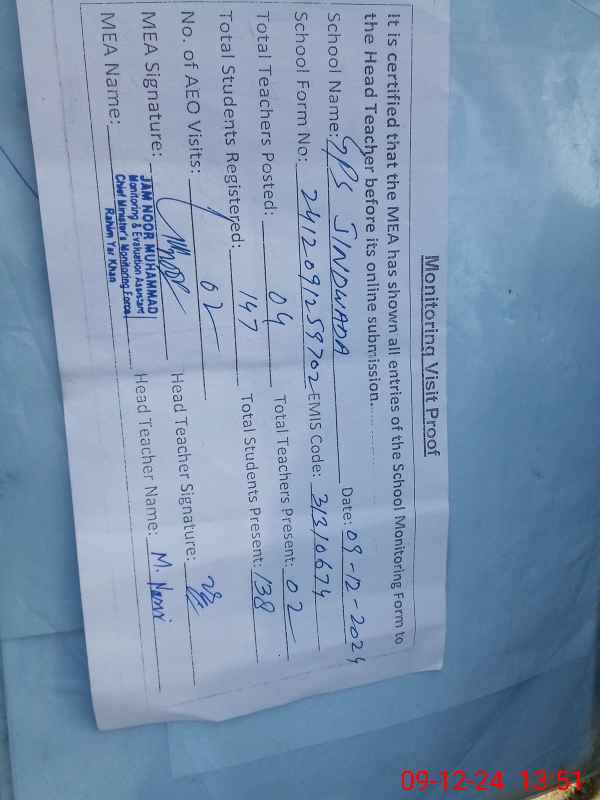 Monitoring Visit Proof
It is certified that the MEA has shown all entries of the School Monitoring Form to
the Head Teacher before its online submission.
School Name: GPS JINDWADA Date: 09-12-2024
School Form No: 2412091259702 EMIS Code: 31310674
Total Teachers Posted: 04 Total Teachers Present: 02
Total Students Registered: 147 Total Students Present: 138
No. of AEO Visits: 02
MEA Signature: Head Teacher Signature:
MEA Name: JAM NOOR MUHAMMAD Head Teacher Name: M.
Monitoring & Evaluation Assistant
Chief Minister's Monitoring Force
Rahim Yar Khan
09-12-24 13:51